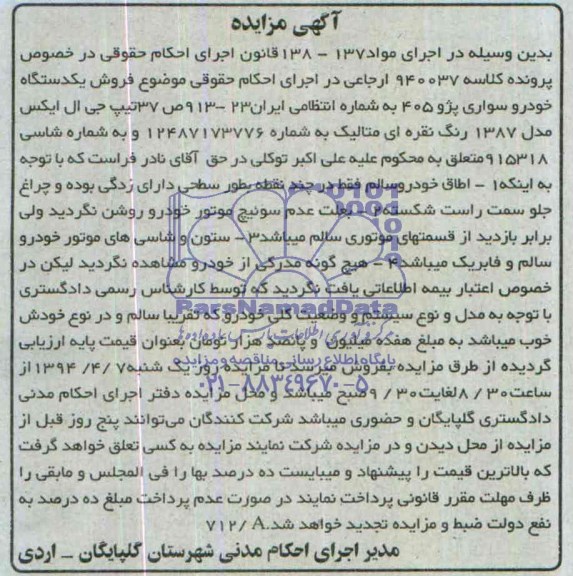 آگهی مزایده
بدین وسیله در اجرای مواد۱۳۷ - ۱۳۸قانون اجرای احکام حقوقی در خصوص
پرونده کلاسه ۹۴۰۰۳۷ ارجاعی در اجرای احکام حقوقی موضوع فروش یکدستگاه
خودرو سواری پژو ۴۰۵ به شماره انتظامی ایران۲۳ -۹۱۳ص ۳۷تیپ جی ال ایکس
مدل ۱۳۸۷ رنگ نقره ای متالیک به شماره ۱۲۴۸۷۱۷۳۷۷۶ و به شماره شاسی
۹۱۵۳۱۸متعلق به محکوم علیه علی اکبر توکلی در حق آقای نادر فراست که با توجه
به اینکه۱ - اطاق خودروسالم فقط در چند نقطه بطور سطحی دارای زدگی بوده و چراغ
جلو سمت راست شکسته۲ - بعلت عدم سوئیچ موتور خودرو روشن نگردید ولی
برابر بازدید از قسمتهای موتوری سالم میباشد۳- ستون و شاسی های موتور خودرو
سالم و فابریک میباشد۴ - هیچ گونه مدرکی از خودرو مشاهده نگردید لیکن در
خصوص اعتبار بیمه اطلاعاتی یافت نگردید که توسط کارشناس رسمی دادگستری
با توجه به مدل و نوع سیستم و وضعیت کلی خودرو که تقریبا سالم و در نوع خودش
خوب میباشد به مبلغ هفده میلیون و پانصد هزار تومان بعنوان قیمت پایه ارزیابی
گردیده از طرق مزایده بفروش میرسد تا مزایده روز یک شنبه۷ /۴/ ۱۳۹۴ از
ساعت۳۰ / ۸لغایت۳۰ / ۹صبح میباشد و محل مزایده دفتر اجرای احکام مدنی
دادگستری گلپایگان و حضوری میباشد شرکت کنندگان می‌توانند پنج روز قبل از
مزایده از محل دیدن و در مزایده شرکت نمایند مزایده به کسی تعلق خواهد گرفت
که بالاترین قیمت را پیشنهاد و میبایست ده درصد بها را فی المجلس و مابقی را
ظرف مهلت مقرر قانونی پرداخت نمایند در صورت عدم پرداخت مبلغ ده درصد به
نفع دولت ضبط و مزایده تجدید خواهد شد.۷۱۲/A
مدیر اجرای احکام مدنی شهرستان گلپایگان - اردی
ParsNamadData
پایگاه اطلاع رسانی مناقصه و مزایده
۰۲۱-۸۸۳۴۹۶۷۰-۵